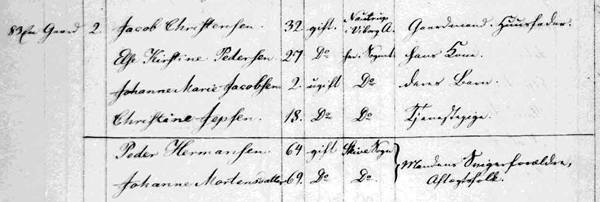 83 en Gaard 2 Jacob Christensen. 32 gift. Nautrup i Viborg A. Gaardmand. Huusfader.
Else Kirstine Pedersen. 27 Do her Sognet hans Kone.
Johanne Marie Jacobsen 2. ugift Do deres Barn.
Christine Jepsen. 18. Do Do Tjenestepige.
Peder Hermansen. 64 gift Skive Sogn
Johanne Mortensdatter 69. Do Do. Mandens Svigerforældre,
Aftægtsfolk.